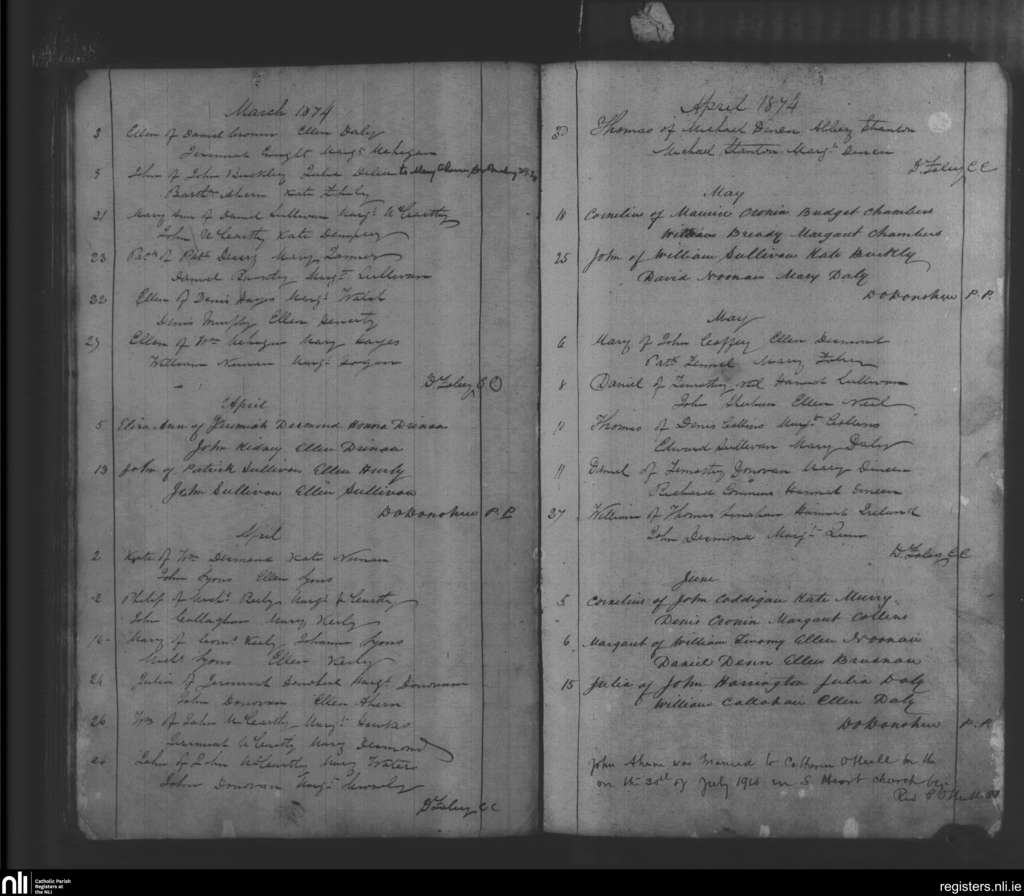 March 1874
3 Ellen of Daniel Cronin Ellen Daly
Jeremiah Margt Mehigan
5 John of John Buckley Julia
Barthw Ahern Kate
21 Mary Ann of Daniel Sullivan Margt McCarthy
John McCarthy Kate Dempsey
23 Patk of Patk Mary
Daniel Margt Sullivan
22 Ellen of Denis Hayes Margt Walsh
Denis Murphy Ellen
29 Ellen of Wm Mehigan Mary Hayes
William Noonan Margt Hogan
D Foley CC
April
5 Eliza Ann of Jeremiah Desmond Honora Drenan
John Kidney Ellen Drinan
13 John of Patrick Sullivan Ellen Hurly
John Sullivan Ellen Sullivan
D O Donoghue P.P.
April
2 Kate of Wm Desmond Kate Noonan
John Lyons Ellen Lyons
2 Philip of Michl Kiely Margt McCarthy
John Callaghan Mary Kiely
16 Mary of Corns Kiely Johanna Lyons
Michl Lyons Ellen Kiely
24 Julia of Jeremiah Margt Donovan
John Donovan Ellen Ahern
26 Wm of John McCarthy Margt
Jeremiah McCarthy Mary Desmond
26 John of John McCarthy Mary Waters
John Donovan Margt
D Foley CC
April 1874
30 Thomas of Michael Dineen Abbey Stanton
Michael Stanton Margt Dineen
D Foley CC
May
18 Cornelius of Maurice Cronin Budget Chambers
William Bready Margaret Chambers
25 John of William Sullivan Kate Buckly
David Noonan Mary Daly
D O Donoghue P.P.
May
6 Mary of John Geoffrey Ellen Desmond
Patk Mary Foley
8 Daniel of Timothy Neil Hannah Sullivan
John Ellen Neil
11 Thomas of Denis Collins Margt Collins
Edward Sullivan Mary Daly
11 Daniel of Timothy Donovan Mary Dineen
Richard Hannah
27 William of Thomas Hannah Ireland
John Desmond Margt
D Foley CC
June
5 Cornelius of John Caddigan Kate Murry
Denis Cronin Margaret Collins
6 Margaret of William Twomy Ellen Noonan
Daniel Denn Ellen Brusnan
15 Julia of John Harrington Julia Daly
William Callahan Ellen Daly
D O Donoghue P.P.
John Ahane was married to Catherine O'Neill
on the 30th of July 1910 in S Heart Church by
Rev
nli
Catholic Parish
Registers at
the NLI
registers.nli.ie